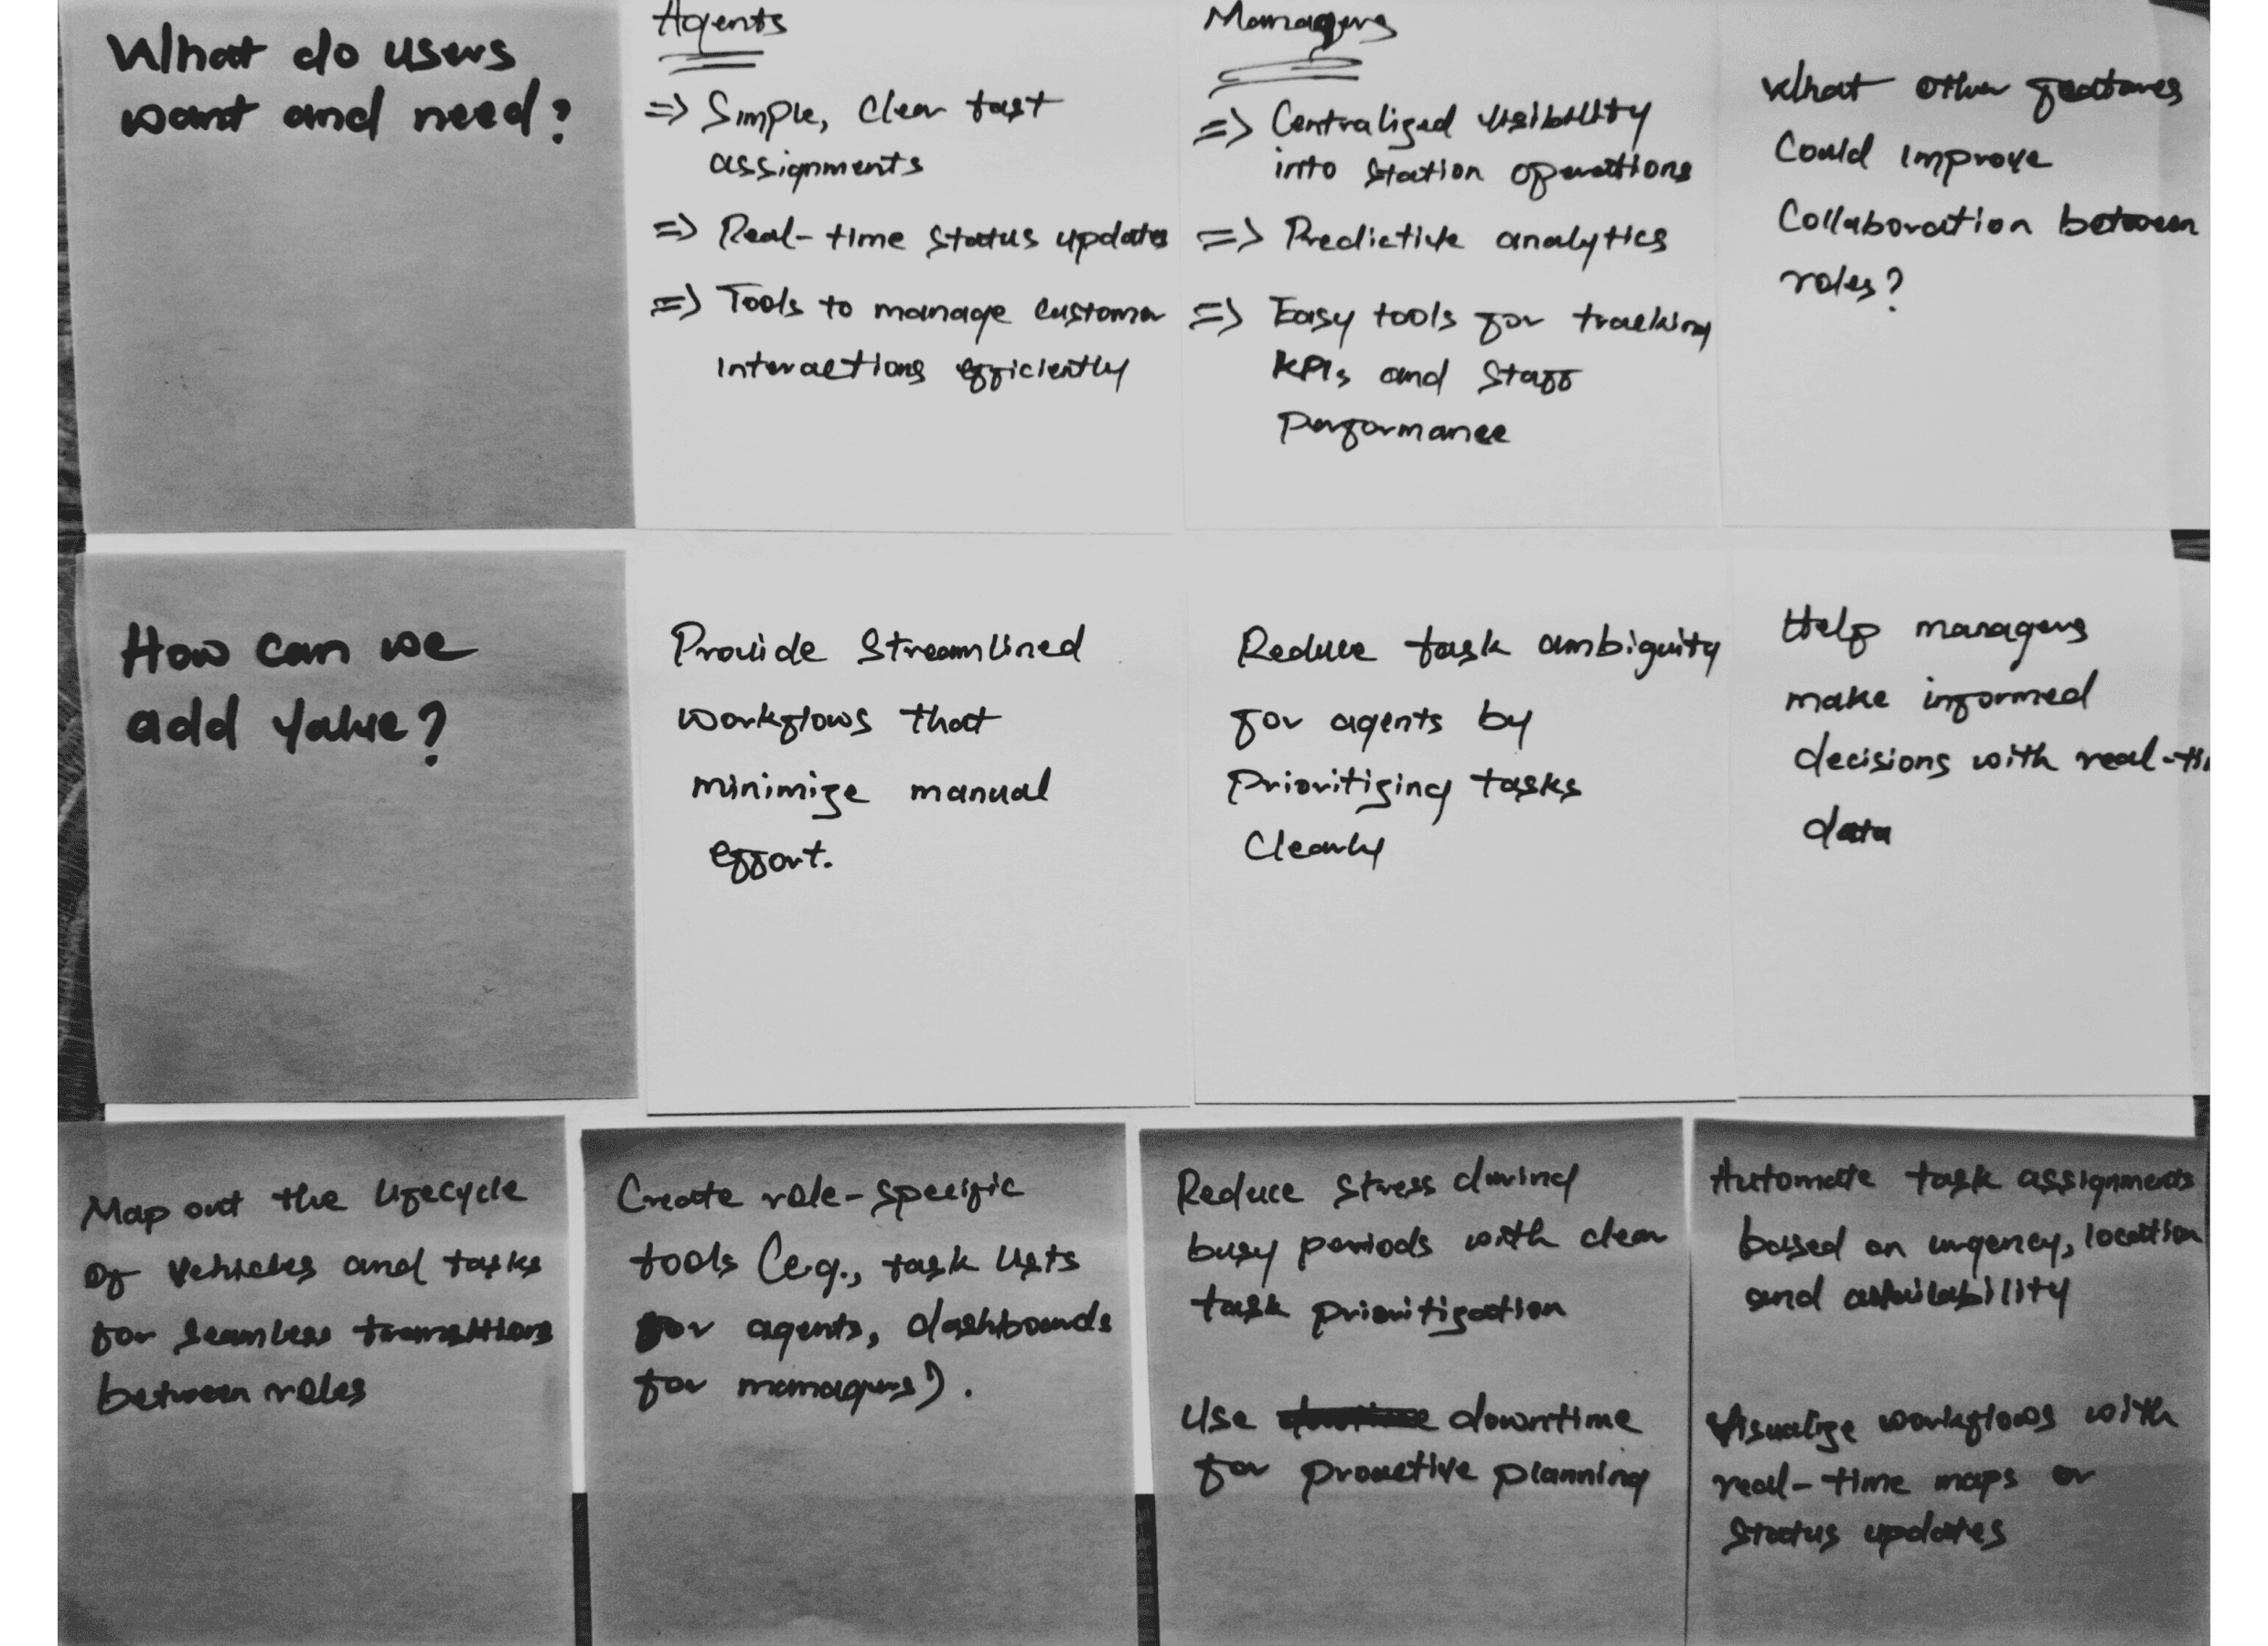 What do users
want and need?
Agents
=> Simple, clear fast
assignments
=> Real-time status updates
=> Tools to manage customer
interactions efficiently
Managers
=> Centralized visibility
into station operations
=> Predictive analytics
=> Easy tools for tracking
KPIs and staff
performance
What other features
could improve
collaboration between
roles?
How can we
add value?
Provide streamlined
workflows that
minimize manual
effort.
Reduce task ambiguity
for agents by
prioritizing tasks
clearly
Help managers
make informed
decisions with real-ti
data
Map out the lifecycle
of vehicles and tasks
for seamless transitions
between roles
Create role-specific
tools (e.g., task lists
for agents, dashboards
for managers).
Reduce stress during
busy periods with clear
task prioritization
Use downtime
for proactive planning
Automate task assignments
based on urgency, location
and availability
Visualize workflows with
real-time maps or
status updates